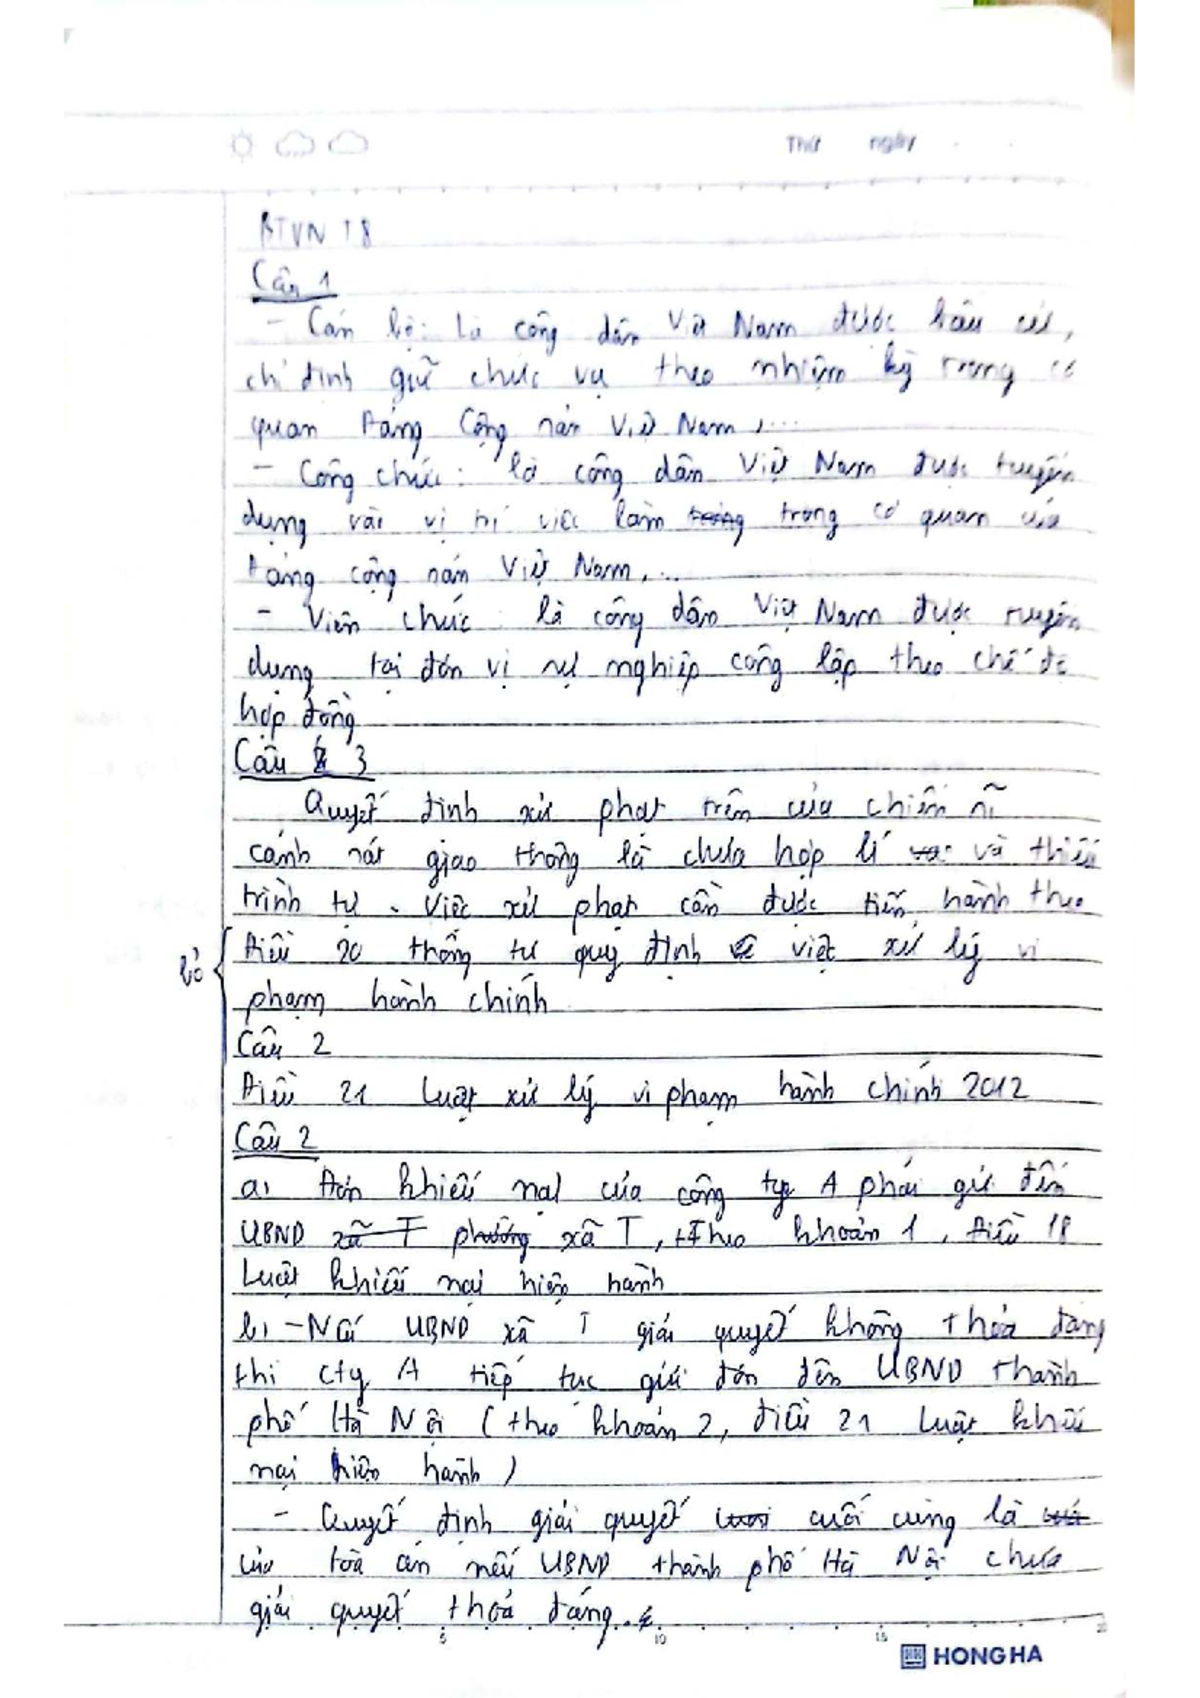 Thứ ngày
BTVN T8
Câu 1
- Cán bộ: Là công dân Việt Nam được bầu cử,
chỉ định giữ chức vụ theo nhiệm kỳ trong cơ
quan Đảng Cộng sản Việt Nam,...
- Công chức: là công dân Việt Nam được tuyển
dụng vào vị trí việc làm trong cơ quan của
Đảng cộng sản Việt Nam,...
- Viên chức: là công dân Việt Nam được tuyển
dụng tại đơn vị sự nghiệp công lập theo chế độ
hợp đồng
Câu 3
Quyết định xử phạt trên của chiến sĩ
cảnh sát giao thông là chưa hợp lí và thiếu
trình tự. Việc xử phạt cần được tiến hành theo
bỏ { Điều 20 thông tư quy định về việc xử lý vi
phạm hành chính
Câu 2
Điều 21 Luật xử lý vi phạm hành chính 2012
Câu 2
a, Đơn khiếu nại của công ty A phải gửi đến
UBND xã T phường xã T, Theo khoản 1, Điều 18
Luật khiếu nại hiện hành
b, - Nếu UBND xã T giải quyết không thỏa đáng
thì cty A tiếp tục gửi đơn đến UBND thành
phố Hà Nội (theo khoản 2, điều 21 Luật khiếu
nại hiện hành)
- Quyết định giải quyết cuối cùng là
của tòa án nếu UBND thành phố Hà Nội chưa
giải quyết thoả đáng.
5 10 15 20
HONG HA